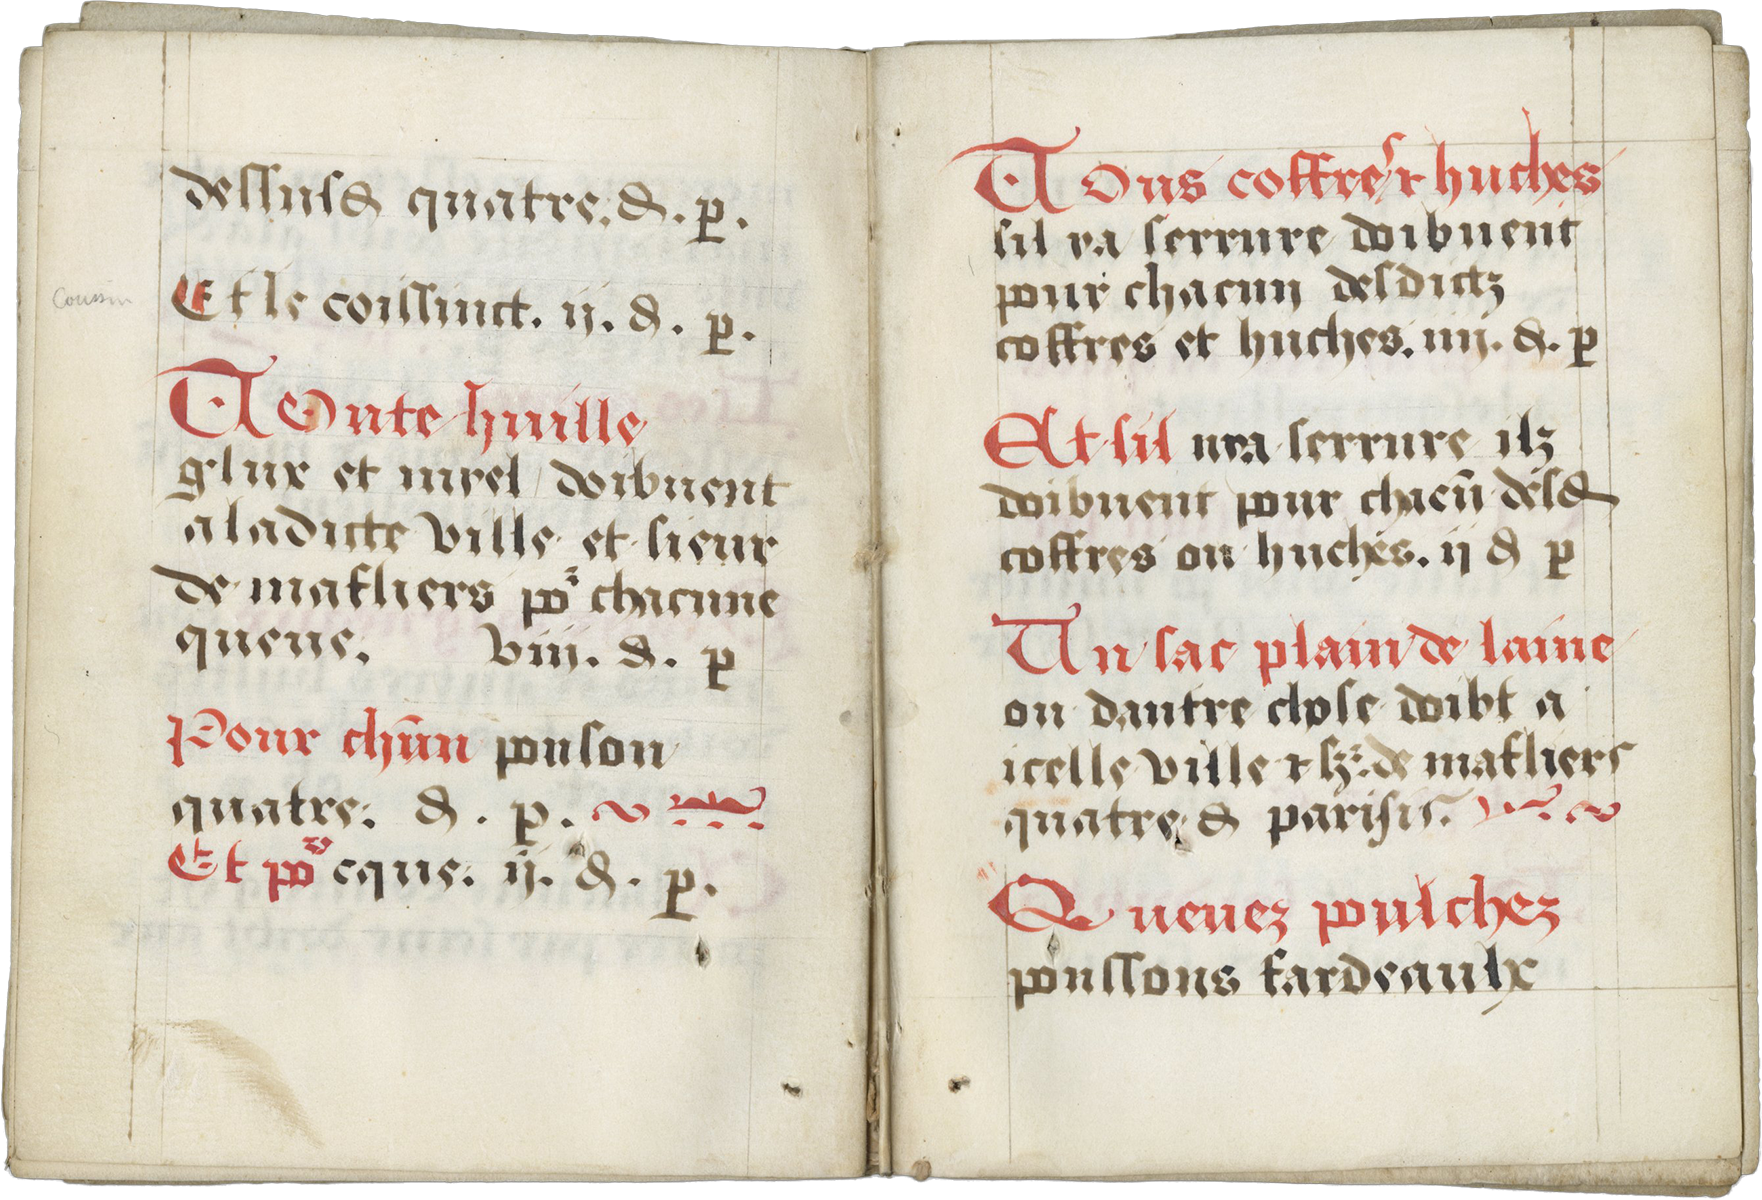 dessusd quatre. d. p.
Coussin
Et le coissinct. ii. d. p.
Toute huille
glux et miel doibuent
a ladicte ville et sieur
de matliers po chacune
queue. viii. d. p
Pour chūn pouson
quatre. d. p.
Et po cque. ii. d. p.
Tous coffres et huches
sil ya serrure doibuent
pour chacun desdictz
coffres et huches. iiii. d. p
Et sil nya serrure ilz
doibuent pour chacū desd
coffres ou huches. ii d p
Un sac plain de laine
ou dautre chose doibt a
icelle ville et sr de matliers
quatre d parisis.
Queuez poulchez
poussons fardeaulx